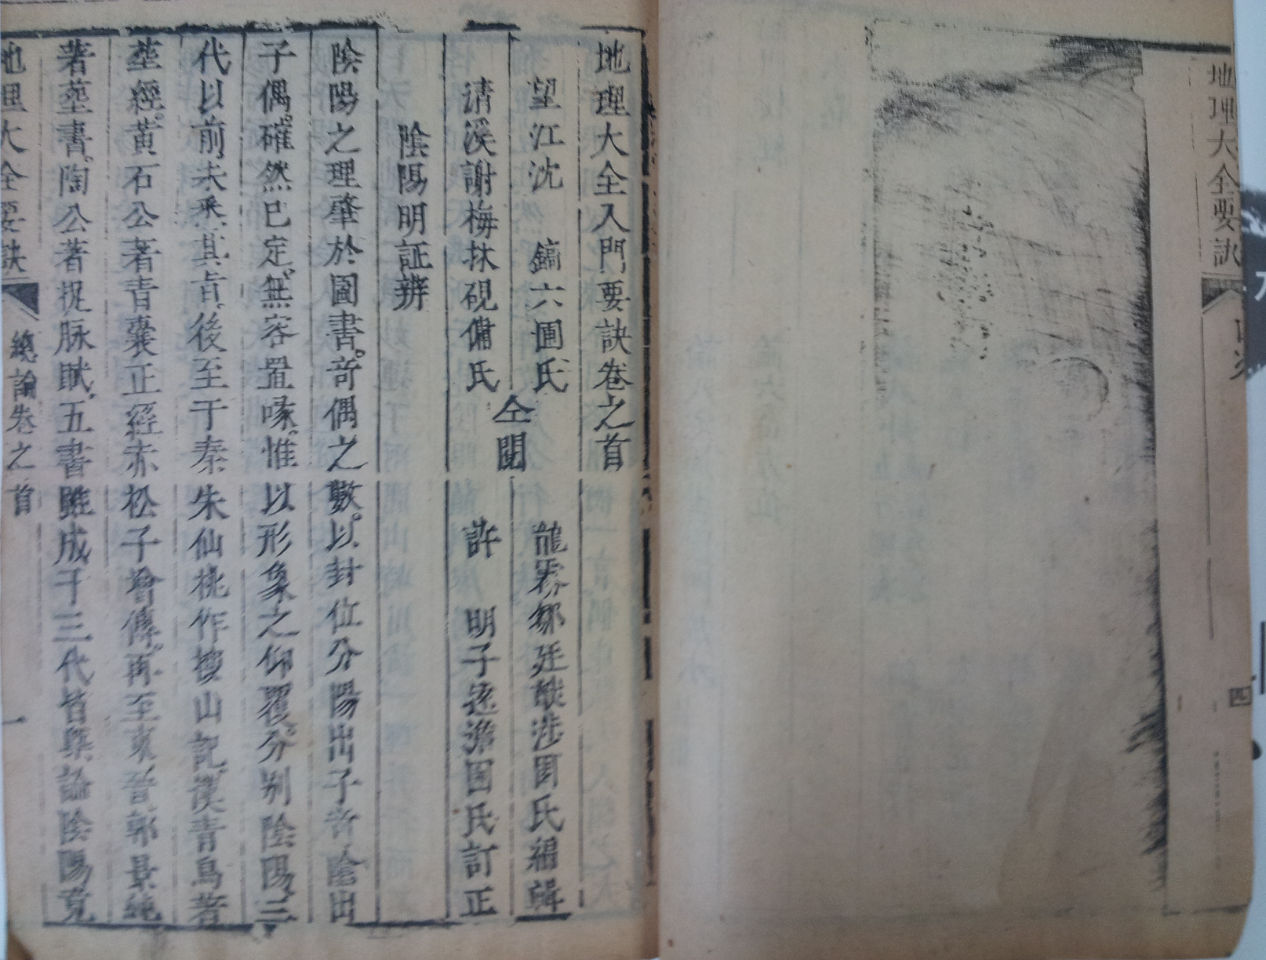 地理大全要訣
四
地理大全入門要訣卷之首
望江沈 鎬六圃氏
仝閱
龍雰鄒廷猷涉園氏編輯
清溪謝梅林硯傭氏
許 明子遠澹園氏訂正
陰陽明証辨
陰陽之理肇於圖書竒偶之數以封位分陽出子竒陰出
子偶確然已定無容置喙惟以形象之仰覆分别陰陽三
代以前未聞其眞後至于秦朱仙桃作搜山記漢青烏著
塟經黃石公著青囊正經赤松子增傳再至東晉郭景純
著塟書陶公著捉脉賦五書雖成于三代皆槩論陰陽竟
地理大全要訣
總論卷之首
一